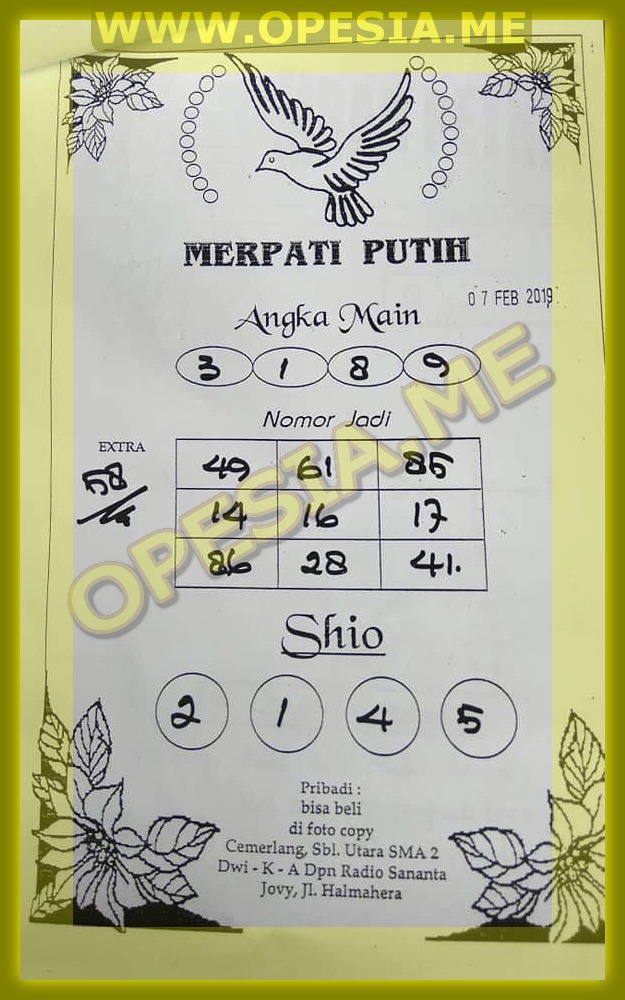 WWW.OPESIA.ME
MERPATI PUTIH
07 FEB 2019
Angka Main
3 1 8 9
Nomor Jadi
EXTRA
58
49 61 85
14 16 17
86 28 41.
OPESIA.ME
Shio
2 1 4 5
Pribadi :
bisa beli
di foto copy
Cemerlang, Sbl. Utara SMA 2
Dwi - K - A Dpn Radio Sananta
Jovy, Jl. Halmahera